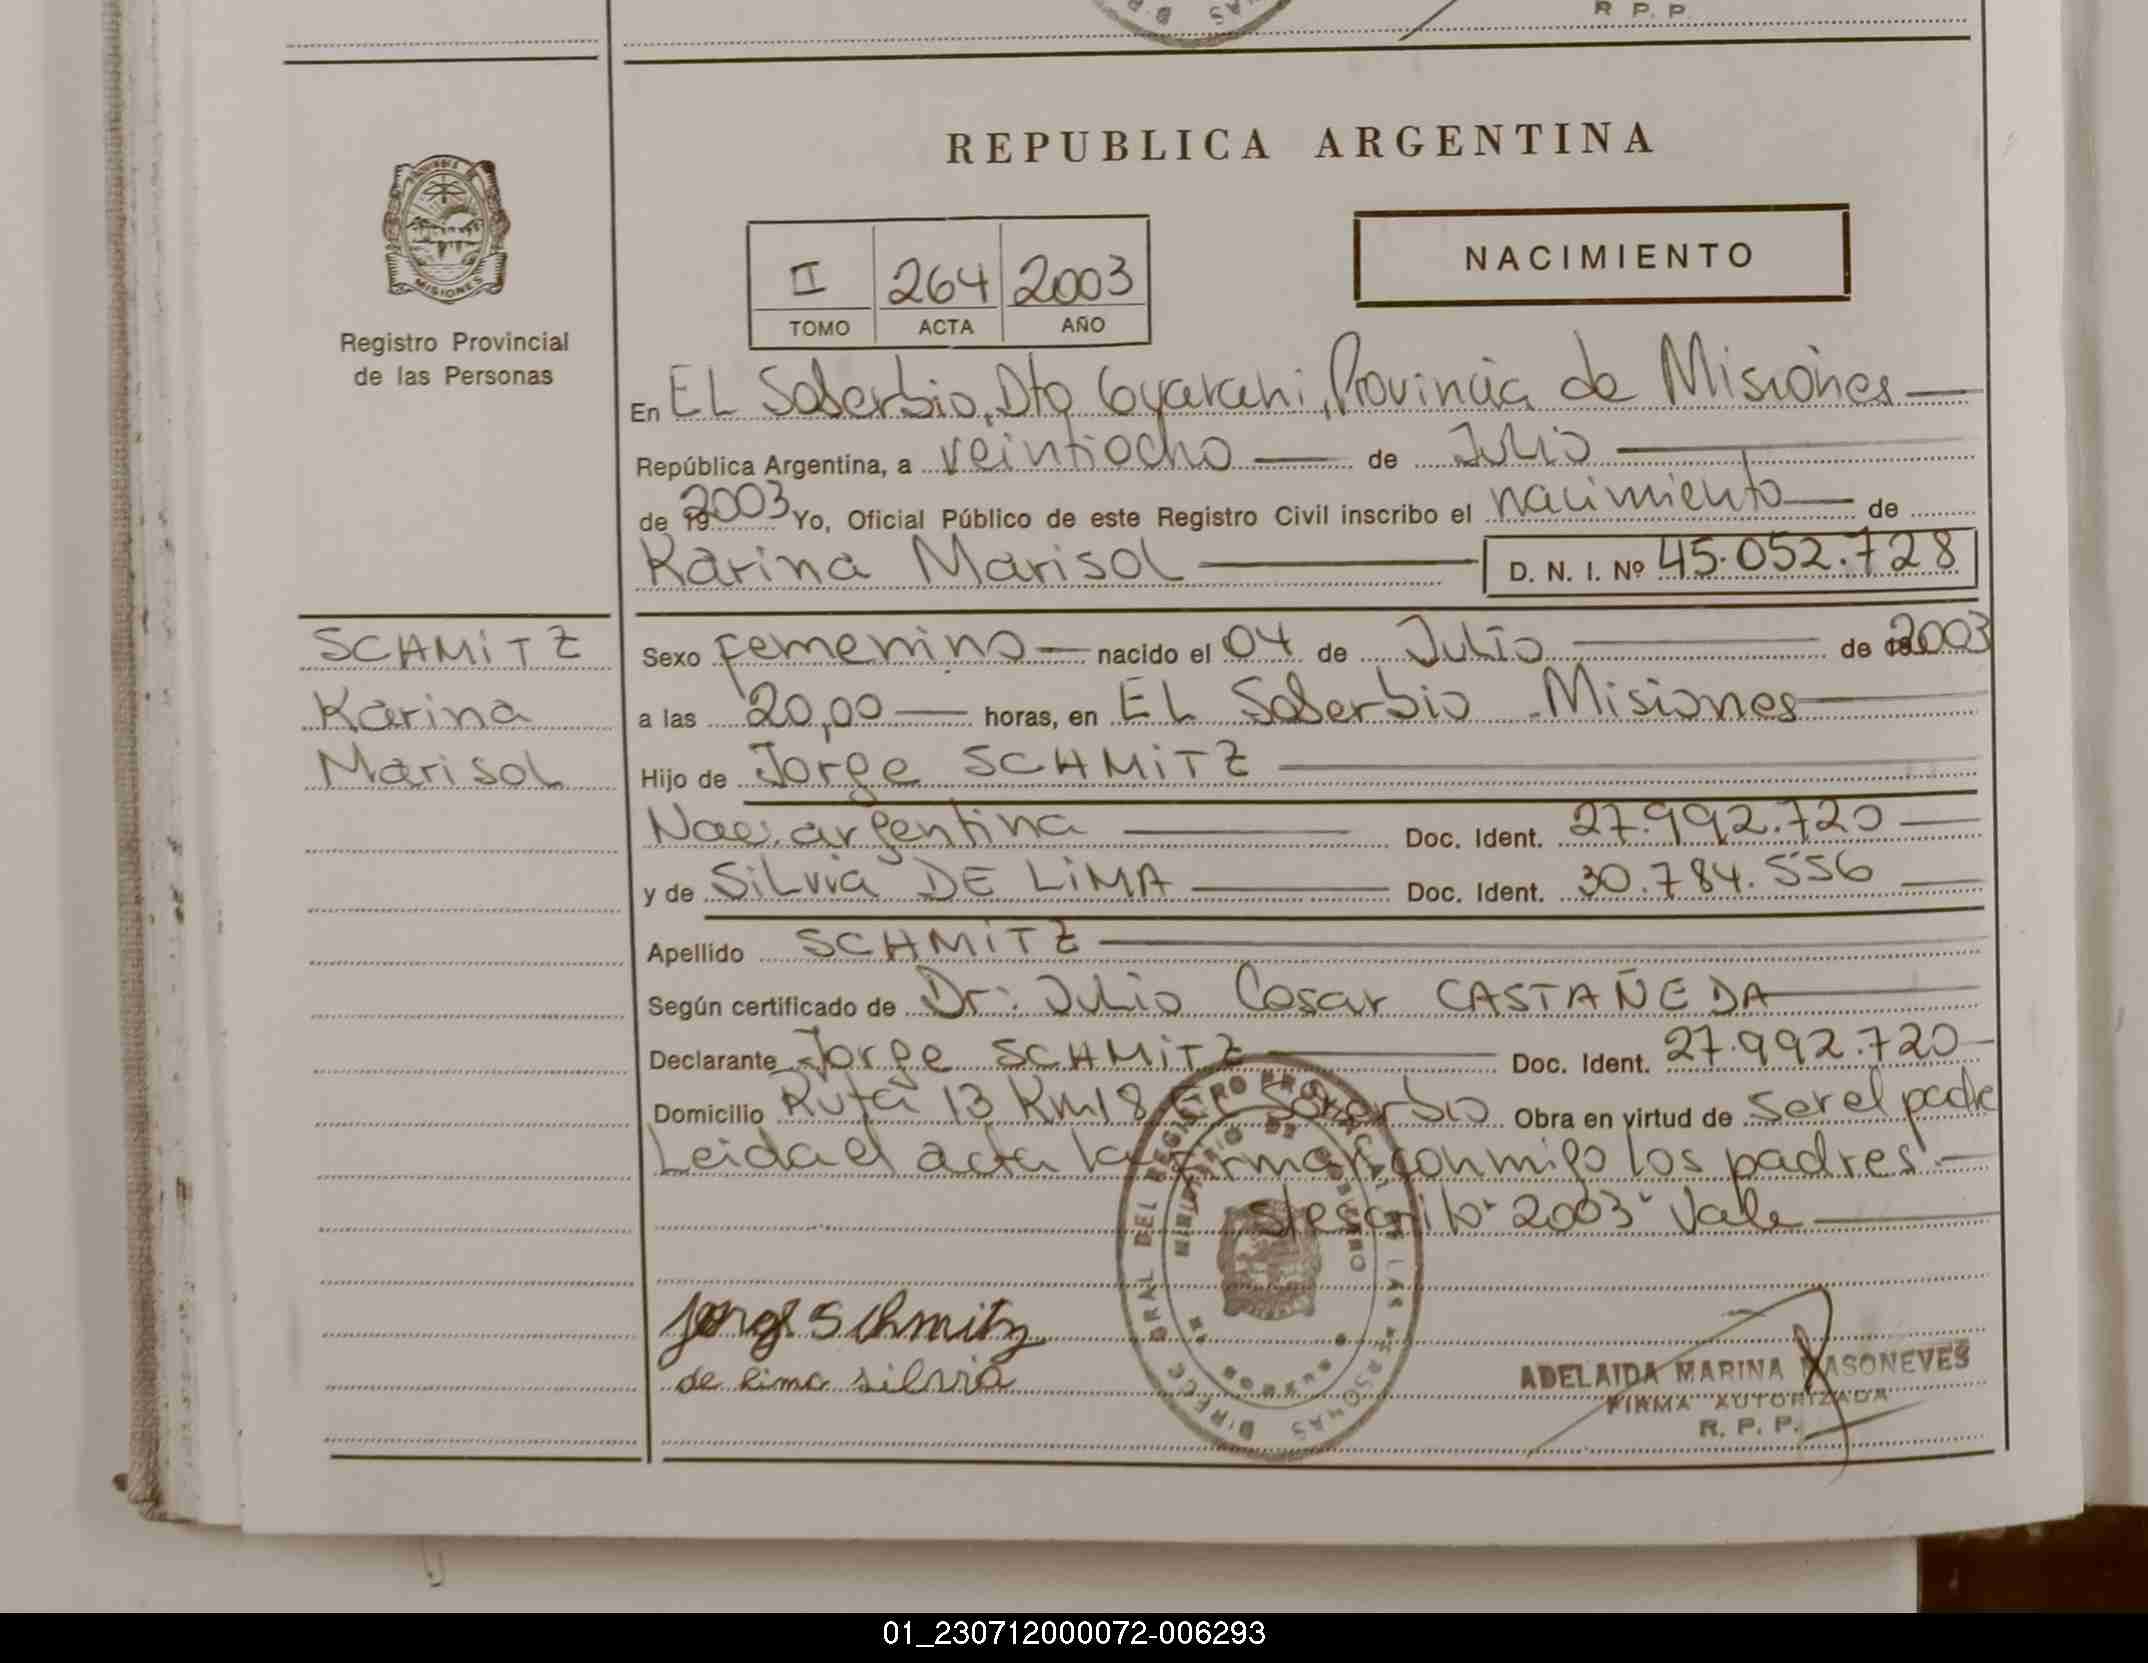 R. P. P.
REPUBLICA ARGENTINA
MISIONES
Registro Provincial
de las Personas
NACIMIENTO
II 264 2003
TOMO ACTA AÑO
En EL Soberbio, Dto Guarani, Provincia de Misiones
República Argentina, a veintiocho de Julio
de 19 2003 Yo, Oficial Público de este Registro Civil inscribo el nacimiento de
Karina Marisol D. N. I. Nº 45.052.728
SCHMITZ
Karina
Marisol
Sexo femenino nacido el 04 de Julio de 2003
a las 20,00 horas, en EL Soberbio Misiones
Hijo de Jorge SCHMITZ
Nac. argentina Doc. Ident. 27.992.720
y de Silvia DE LIMA Doc. Ident. 30.784.556
Apellido SCHMITZ
Según certificado de Dr. Julio Cesar CASTAÑEDA
Declarante Jorge SCHMITZ Doc. Ident. 27.992.720
Domicilio Ruta 13 Km 18 El Soberbio Obra en virtud de ser el padre
Leida el acta la firman conmigo los padres
s/escrito "2003" Vale
Jorge Schmitz
de lima silvia
ADELAIDA MARINA MASONEVES
FIRMA AUTORIZADA
R. P. P.
01_230712000072-006293